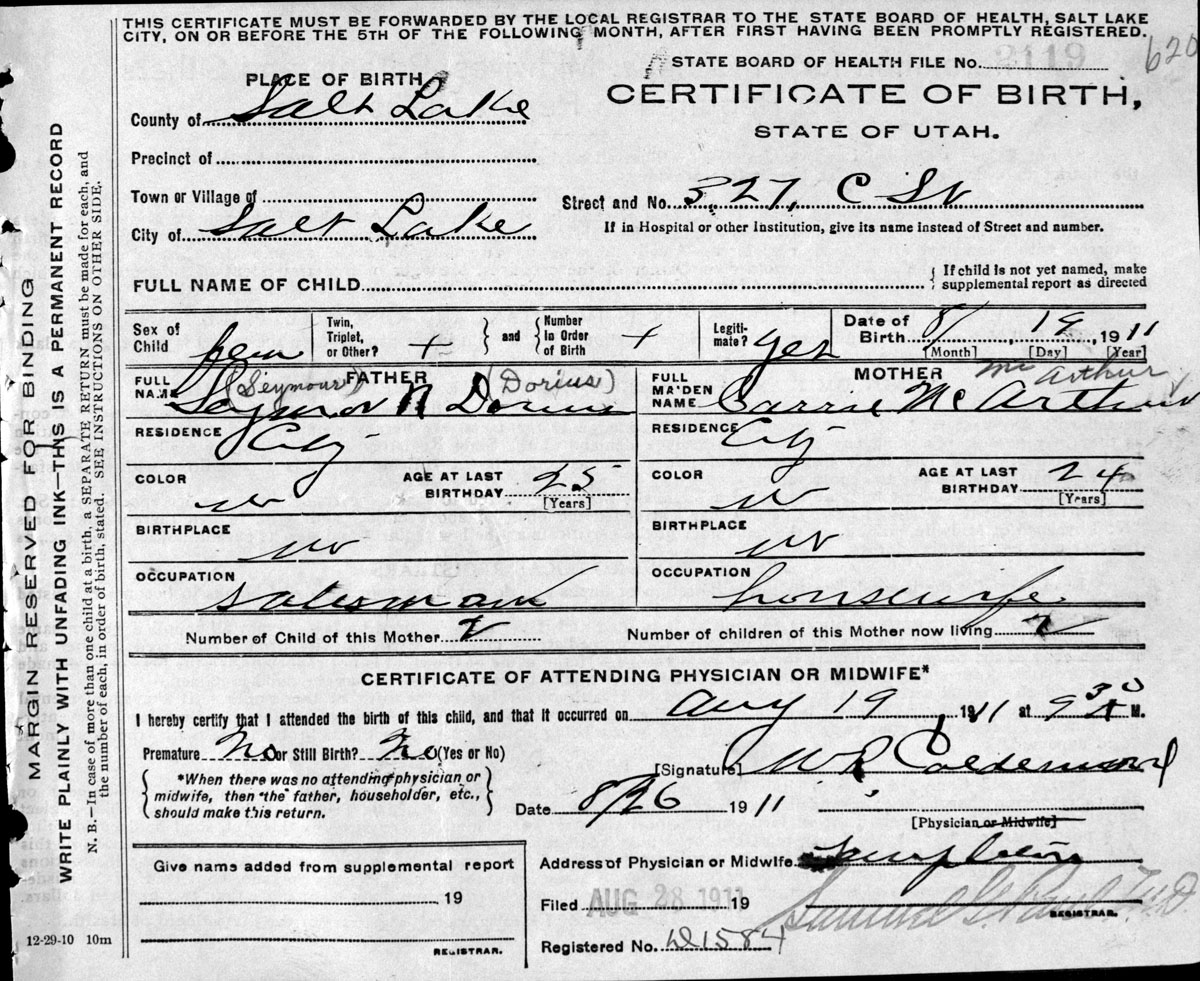 THIS CERTIFICATE MUST BE FORWARDED BY THE LOCAL REGISTRAR TO THE STATE BOARD OF HEALTH, SALT LAKE
CITY, ON OR BEFORE THE 5TH OF THE FOLLOWING MONTH, AFTER FIRST HAVING BEEN PROMPTLY REGISTERED.
620
PLACE OF BIRTH
STATE BOARD OF HEALTH FILE No. 2119
County of Salt Lake
CERTIFICATE OF BIRTH,
STATE OF UTAH.
Precinct of
Town or Village of
Street and No. 327, C St
City of Salt Lake
If in Hospital or other Institution, give its name instead of Street and number.
FULL NAME OF CHILD
{ If child is not yet named, make
supplemental report as directed
Sex of Child fem
Twin, Triplet, or Other? +
and
Number in Order of Birth +
Legiti-mate? yes
Date of Birth 8/ 19, 1911
[Month] [Day] [Year]
FATHER
FULL NAME (Seymour) (Dorius)
Seymor N Dorius
RESIDENCE City
COLOR w
AGE AT LAST BIRTHDAY 25
[Years]
BIRTHPLACE
OCCUPATION salesman
MOTHER
McArthur
FULL MAIDEN NAME Carrie McArthur
RESIDENCE City
COLOR w
AGE AT LAST BIRTHDAY 24
[Years]
BIRTHPLACE
OCCUPATION housewife
Number of Child of this Mother 2
Number of children of this Mother now living 2
CERTIFICATE OF ATTENDING PHYSICIAN OR MIDWIFE*
I hereby certify that I attended the birth of this child, and that it occurred on Aug 19, 1911 at 9 30 A M.
Premature No or Still Birth? No (Yes or No)
*When there was no attending physician or
midwife, then the father, householder, etc.,
should make this return.
[Signature] W R
Date 8/26 1911
[Physician or Midwife]
Give name added from supplemental report
19
REGISTRAR.
Address of Physician or Midwife
Filed AUG 28 1911 19
Samuel G. Paul M.D.
REGISTRAR.
Registered No. D1584
12-29-10 10m
MARGIN RESERVED FOR BINDING
WRITE PLAINLY WITH UNFADING INK—THIS IS A PERMANENT RECORD
N. B.—In case of more than one child at a birth, a SEPARATE RETURN must be made for each, and
the number of each, in order of birth, stated. SEE INSTRUCTIONS ON OTHER SIDE.